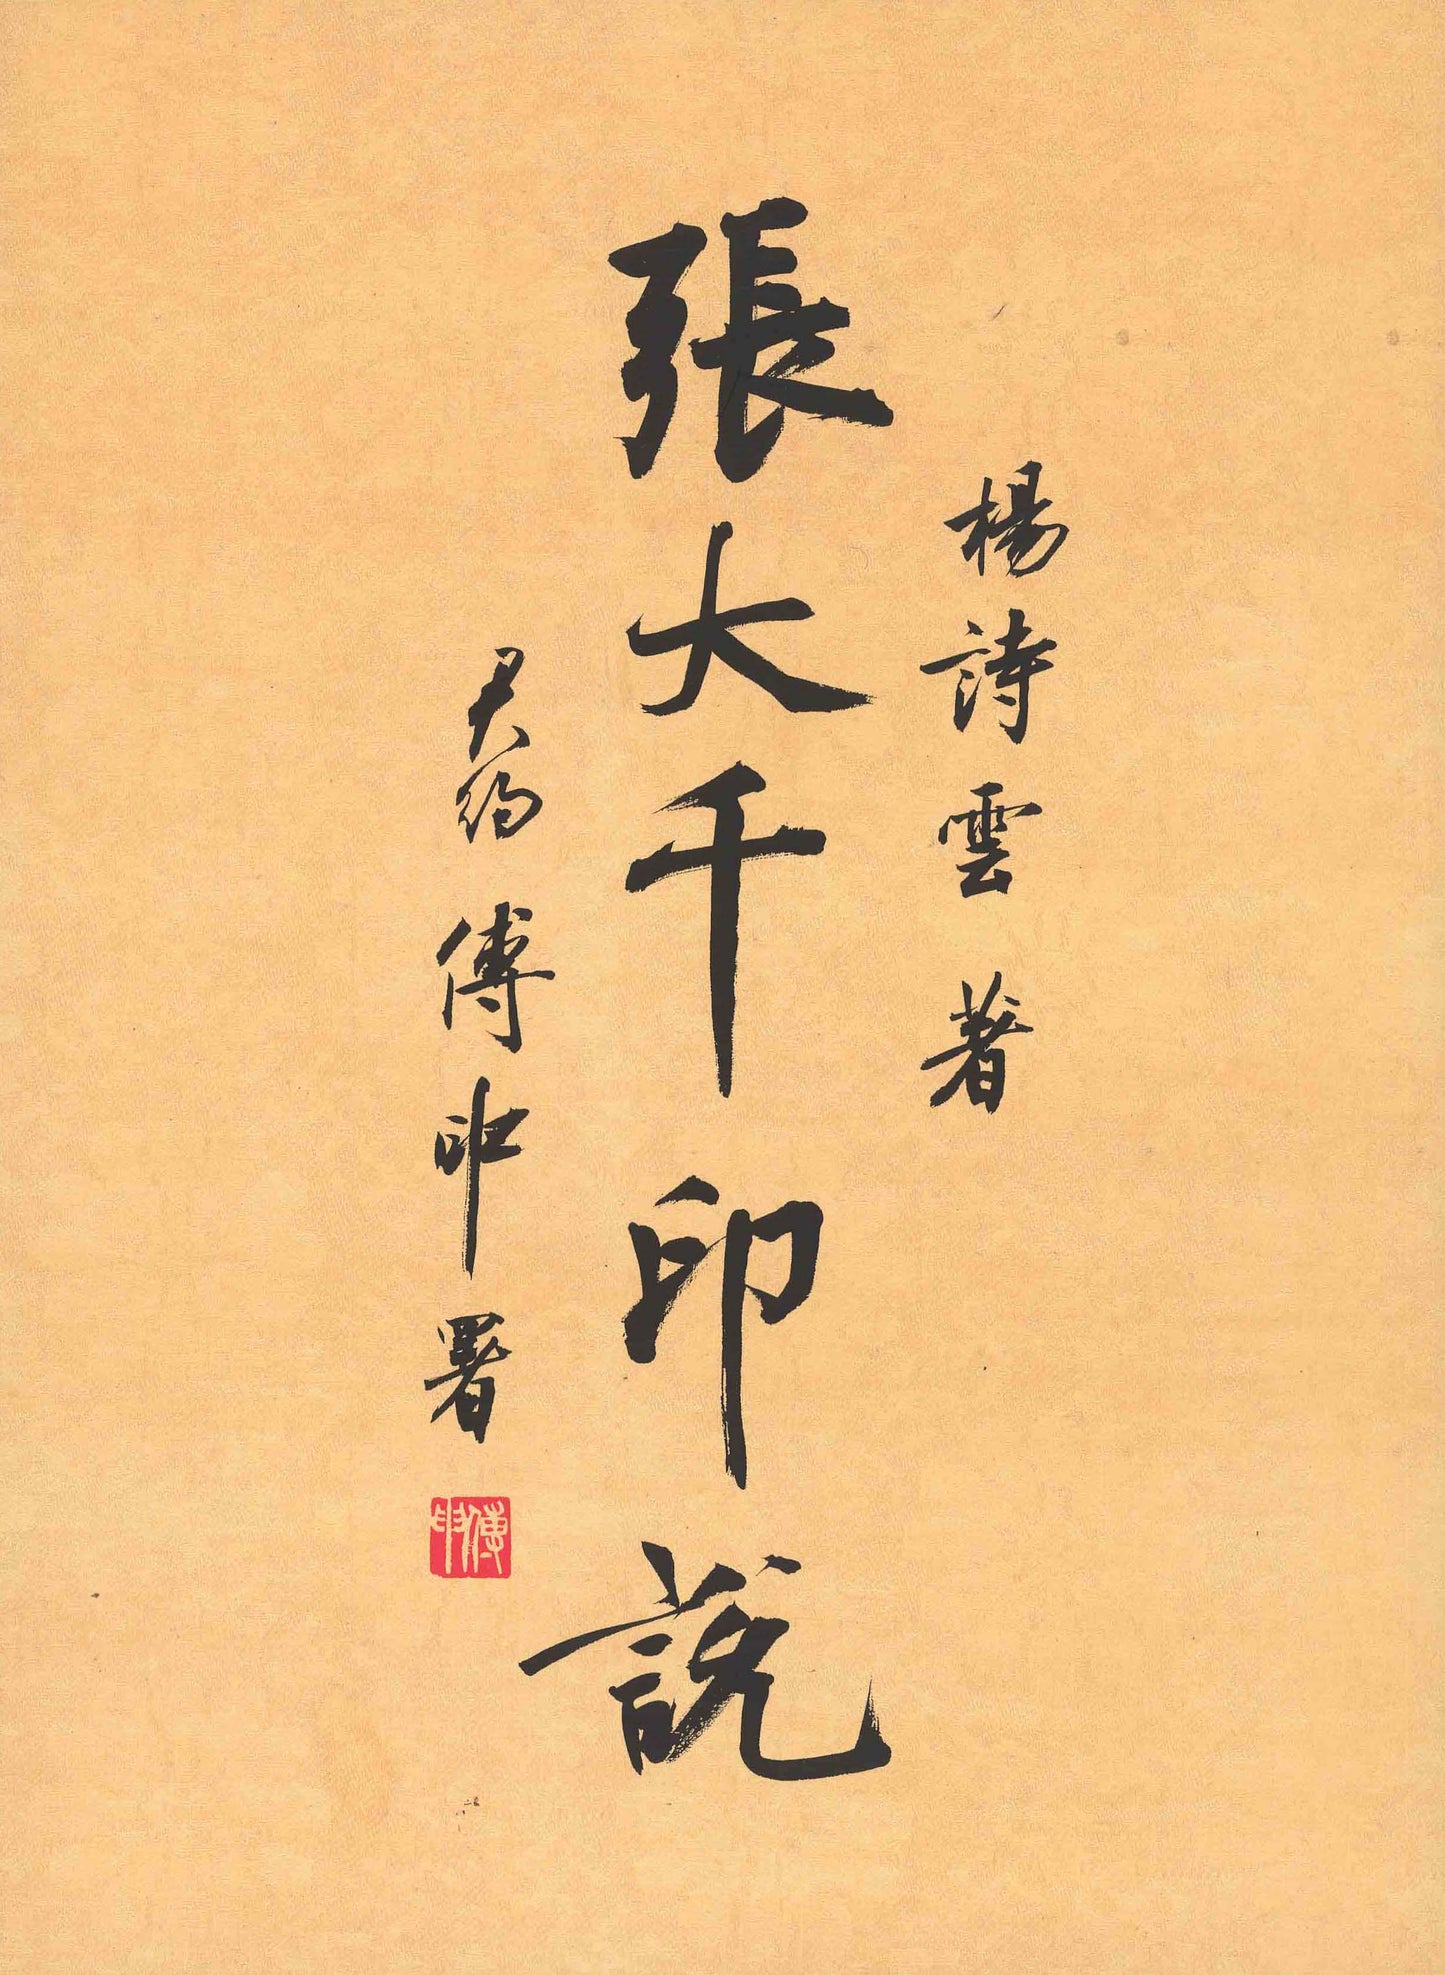 楊詩雲 著
張大千印說
君約 傅申 署
傅申